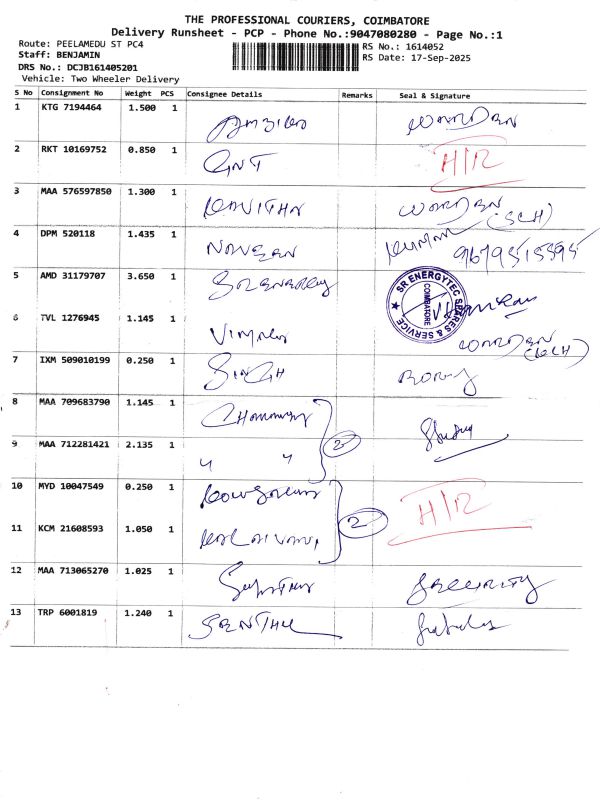 THE PROFESSIONAL COURIERS, COIMBATORE
Delivery Runsheet - PCP - Phone No.:9047080280 - Page No.:1
Route: PEELAMEDU ST PC4
RS No.: 1614052
Staff: BENJAMIN
RS Date: 17-Sep-2025
DRS No.: DCJB161405201
Vehicle: Two Wheeler Delivery
S No Consignment No Weight PCS Consignee Details Remarks Seal & Signature
1 KTG 7194464 1.500 1 WARDEN
2 RKT 10169752 0.850 1 GNT H/R
3 MAA 576597850 1.300 1 KAVITHA WARDEN (SCH)
4 DPM 520118 1.435 1 NAVEEN
5 AMD 31179707 3.650 1 SR ENERGY
SR ENERGYTEC SPARES & SERVICE COIMBATORE
6 TVL 1276945 1.145 1 WARDEN
7 IXM 509010199 0.250 1 SINGH
8 MAA 709683790 1.145 1
2
9 MAA 712281421 2.135 1 " "
10 MYD 10047549 0.250 1 H/R
2
11 KCM 21608593 1.050 1 KALAIVANI
12 MAA 713065270 1.025 1 SECURITY
13 TRP 6001819 1.240 1 SENTHIL